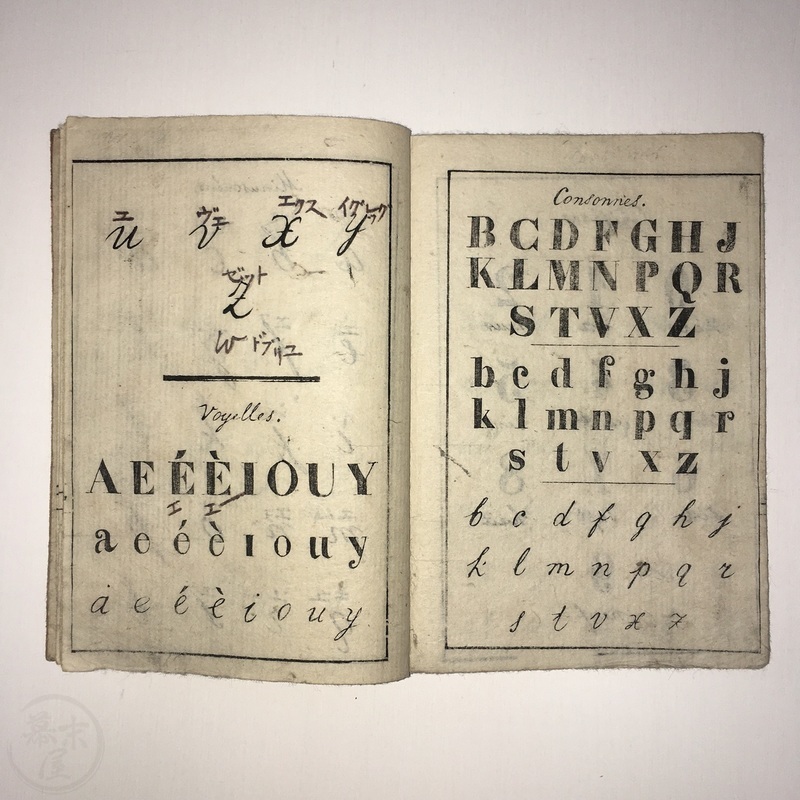 ユ ヴェ エクス
u v x y
ゼット
z
w ドブリユ
Voyelles.
A E É È I O U Y
エ エー
a e é è i o u y
a e é è i o u y
Consonnes.
B C D F G H J
K L M N P Q R
S T V X Z
b c d f g h j
k l m n p q r
s t v x z
b c d f g h j
k l m n p q r
s t v x z
幕末屋